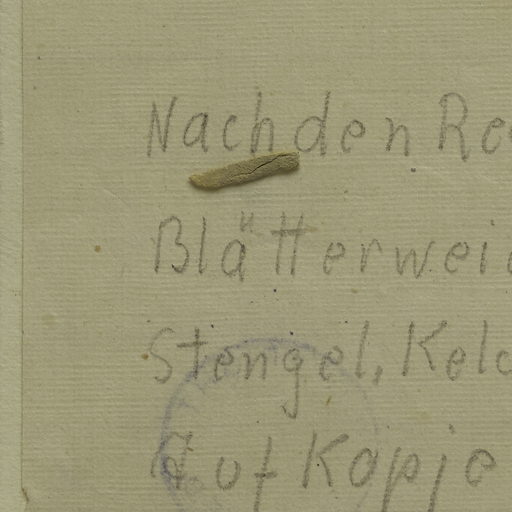 Nach den Re
Blätter wei
Stengel, Kelc
Auf Kopje